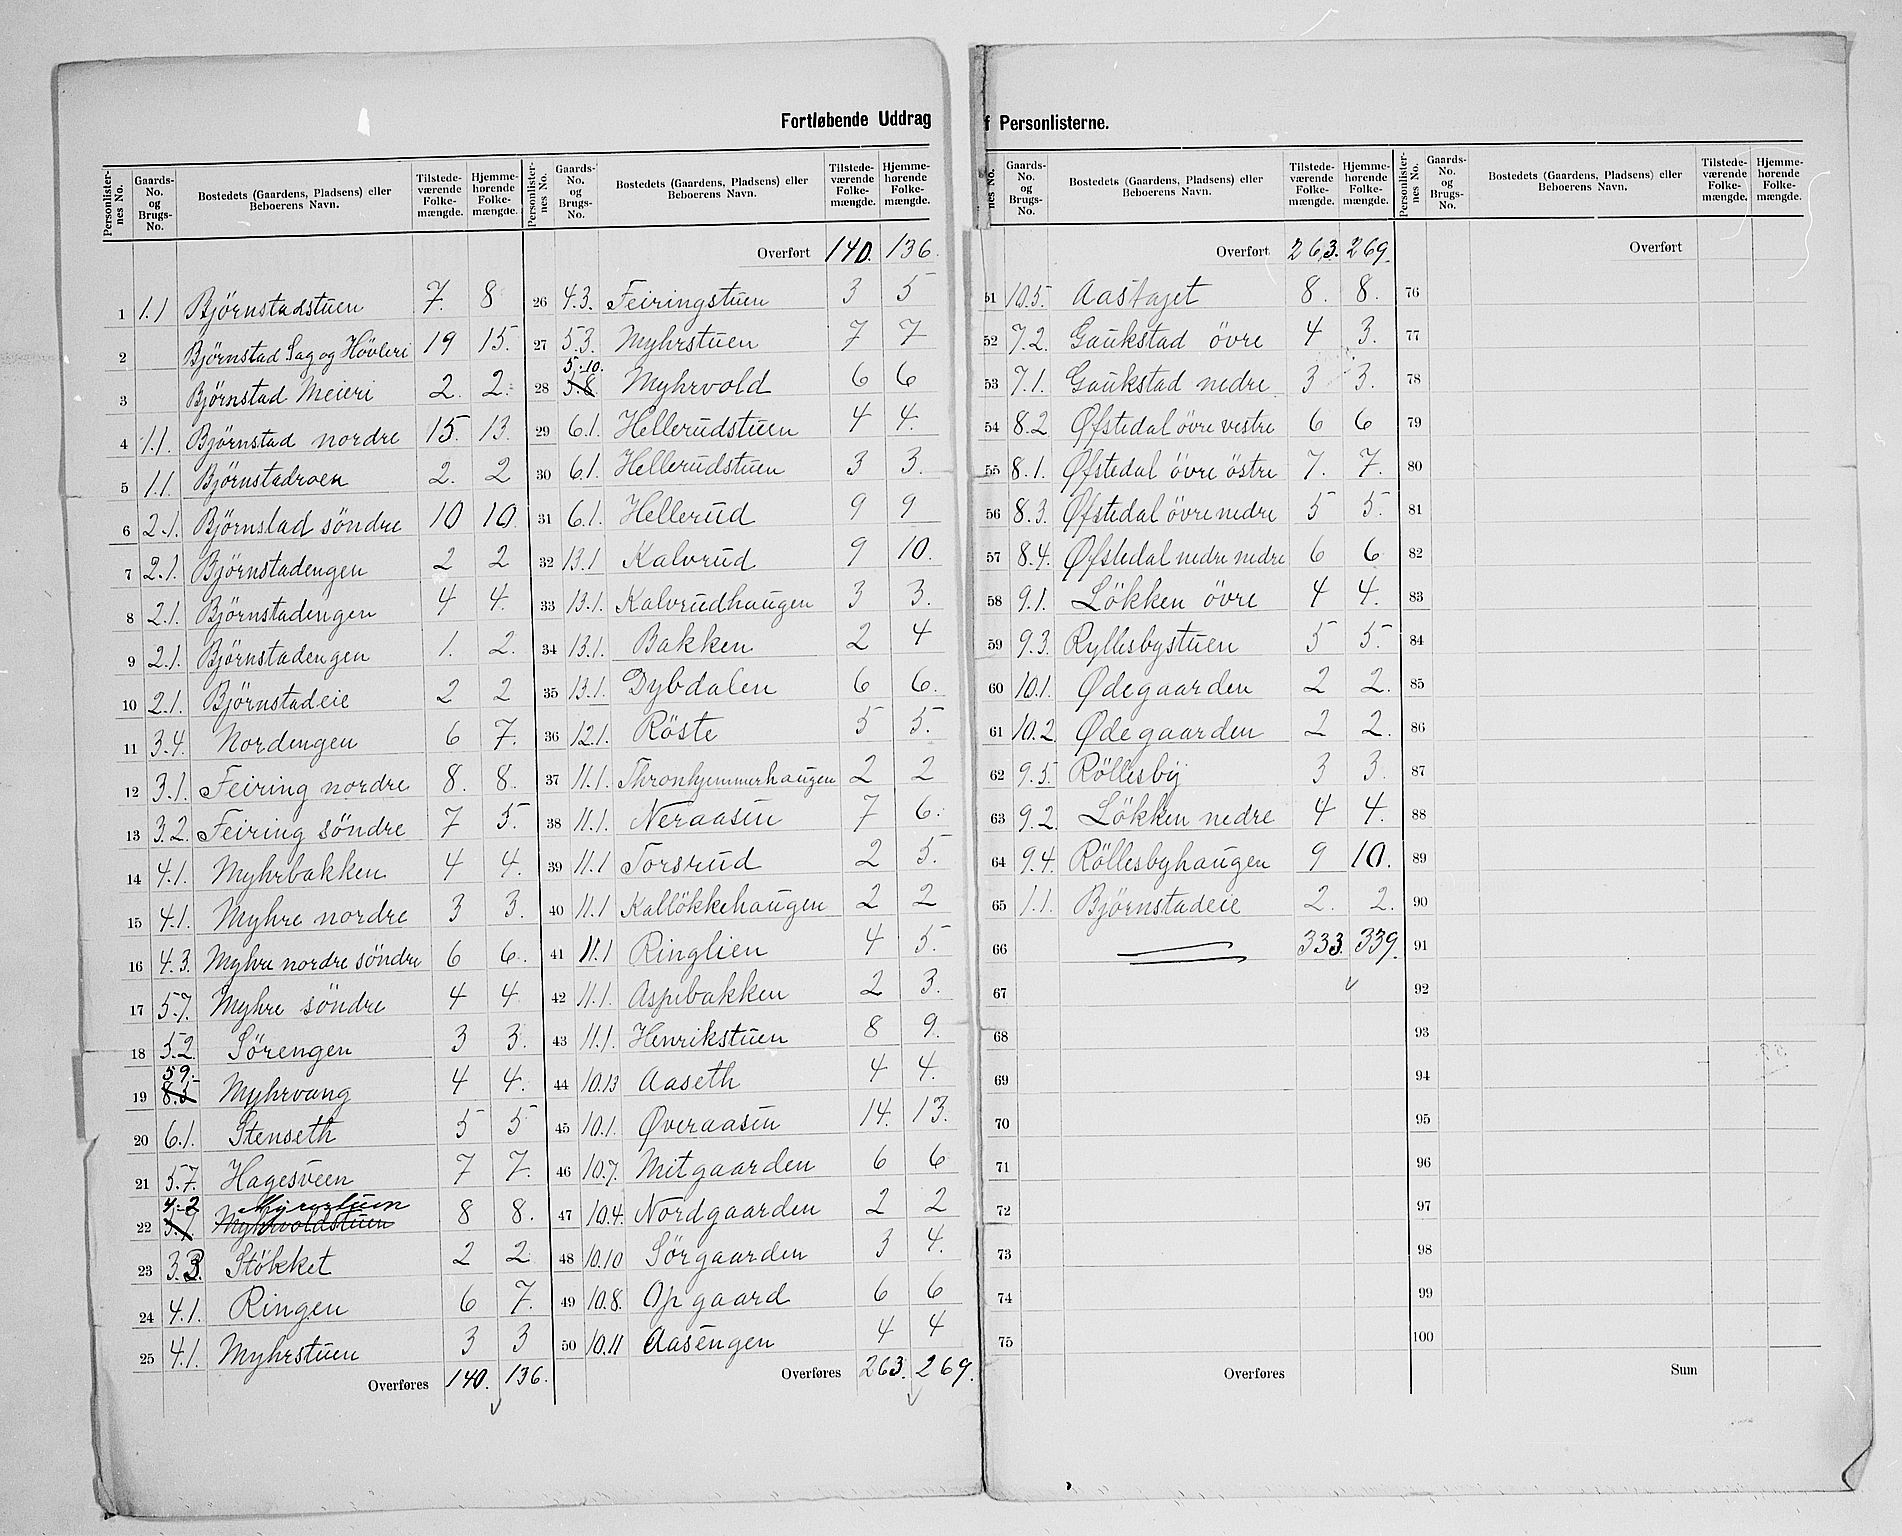 Fortløbende Uddrag
f Personlisterne.
Personlister-nes No. Gaards-No. og Brugs-No. Bostedets (Gaardens, Pladsens) eller Beboerens Navn. Tilstede-værende Folke-mængde. Hjemme-hørende Folke-mængde.
1 1.1 Björnstadstuen 7. 8
2 Björnstad Sag og Hövleri 19 15.
3 Björnstad Meieri 2. 2.
4 1.1. Björnstad nordre 15. 13.
5 1.1. Björnstadroen 2. 2
6 2.1. Björnstad söndre 10 10.
7 2.1. Björnstadengen 2 2
8 2.1. Björnstadengen 4 4.
9 2.1. Björnstadengen 1. 2.
10 2.1. Björnstadeie 2 2
11 3.4. Nordengen 6 7.
12 3.1. Feiring nordre 8. 8.
13 3.2. Feiring söndre 7 5.
14 4.1. Myhrbakken 4 4.
15 4.1. Myhre nordre 3 3.
16 4.3. Myhre nordre söndre 6 6.
17 5.7. Myhre söndre 4 4.
18 5.2. Sörengen 3 3.
59.
19 8.3 Myhrvang 4 4.
20 6.1. Stenseth 5 5
21 5.7. Hagesveen 7 7.
4.2
22 5.1. Myhrvoldstuen 8 8.
23 3.3. Stökket 2 2
24 4.1. Ringen 6 7.
25 4.1. Myhrstuen 3 3
Overføres 140. 136.
Personlister-nes No. Gaards-No. og Brugs-No. Bostedets (Gaardens, Pladsens) eller Beboerens Navn. Tilstede-værende Folke-mængde. Hjemme-hørende Folke-mængde.
Overført 140. 136.
26 4.3. Feiringstuen 3 5
27 5.3. Myhrstuen 7 7
5.10.
28 5.8 Myhrvold 6 6
29 6.1. Hellerudstuen 4 4.
30 6.1. Hellerudstuen 3 3.
31 6.1. Hellerud 9 9
32 13.1 Kalvrud 9 10.
33 13.1. Kalvrudhaugen 3 3.
34 13.1. Bakken 2 4
35 13.1. Dybdalen 6 6.
36 12.1. Röste 5 5.
37 11.1. Thronhjemmerhaugen 2 2
38 11.1. Neraasen 7 6.
39 11.1 Torsrud 2 5.
40 11.1 Kallökkehaugen 2 2
41 11.1 Ringlien 4 5.
42 11.1. Aspebakken 2 3.
43 11.1. Henrikstuen 8 9.
44 10.13 Aaseth 4 4.
45 10.1. Øveraasen 14. 13.
46 10.7. Mitgaarden 6 6
47 10.4. Nordgaarden 2 2
48 10.10 Sörgaarden 3 4.
49 10.8. Opgaard 6 6
50 10.11 Aasengen 4 4
Overføres 263. 269.
nes No. Gaards-No. og Brugs-No. Bostedets (Gaardens, Pladsens) eller Beboerens Navn. Tilstede-værende Folke-mængde. Hjemme-hørende Folke-mængde.
Overført 263. 269.
51 10.5. Aastajet 8. 8.
52 7.2. Gaukstad övre 4 3.
53 7.1. Gaukstad nedre 3 3.
54 8.2 Øfstedal övre vestre 6 6
55 8.1. Øfstedal övre östre 7. 7.
56 8.3. Øfstedal övre nedre 5 5.
57 8.4. Øfstedal nedre nedre 6 6
58 9.1. Lökken övre 4 4.
59 9.3. Ryllesbystuen 5 5.
60 10.1. Ødegaarden 2 2.
61 10.2. Ødegaarden 2 2.
62 9.5. Röllesby 3 3.
63 9.2. Lökken nedre 4 4.
64 9.4. Röllesbyhaugen 9 10.
65 1.1. Björnstadeie 2. 2.
66 333. 339.
67
68
69
70
71
72
73
74
75
Overføres
Personlister-nes No. Gaards-No. og Brugs-No. Bostedets (Gaardens, Pladsens) eller Beboerens Navn. Tilstede-værende Folke-mængde. Hjemme-hørende Folke-mængde.
Overført
76
77
78
79
80
81
82
83
84
85
86
87
88
89
90
91
92
93
94
95
96
97
98
99
100
Sum